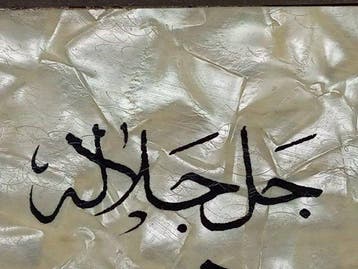 جَل جَلَالُهُ